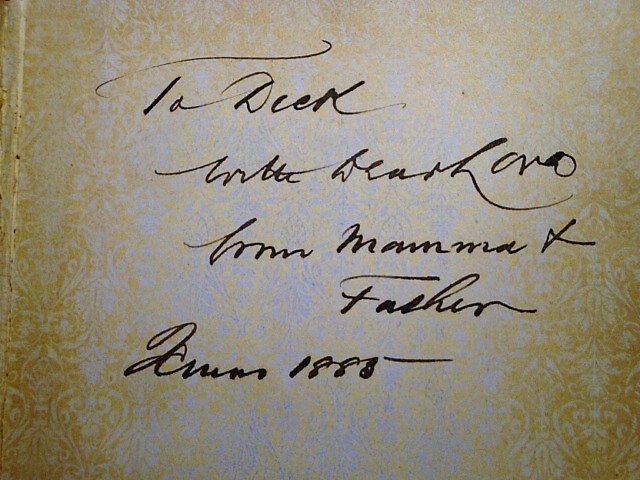 To Dick
with Dear Love
from Mamma &
Father
Xmas 1885